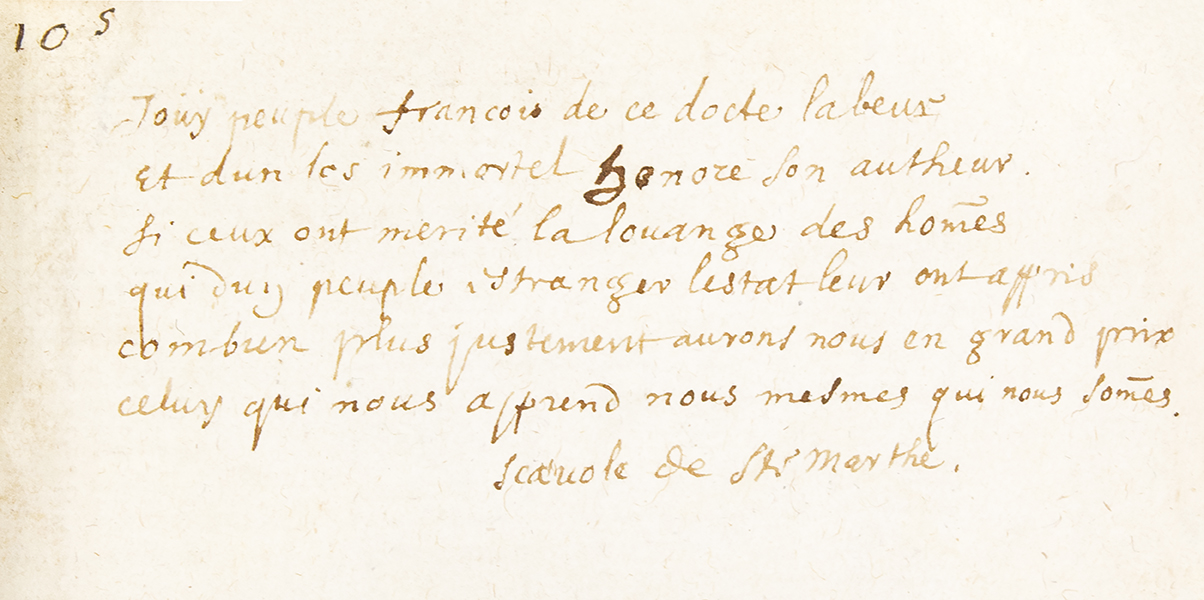 10 s
Joüy peuple francois de ce docte labeur
Et dun los immortel honore son autheur.
si ceux ont merité la louange des hom̄es
qui duy peuple estranger lestat leur ont appris
combien plus justement aurons nous en grand prix
celuy qui nous apprend nous mesmes qui nous som̄es.
scævole de Ste Marthe.